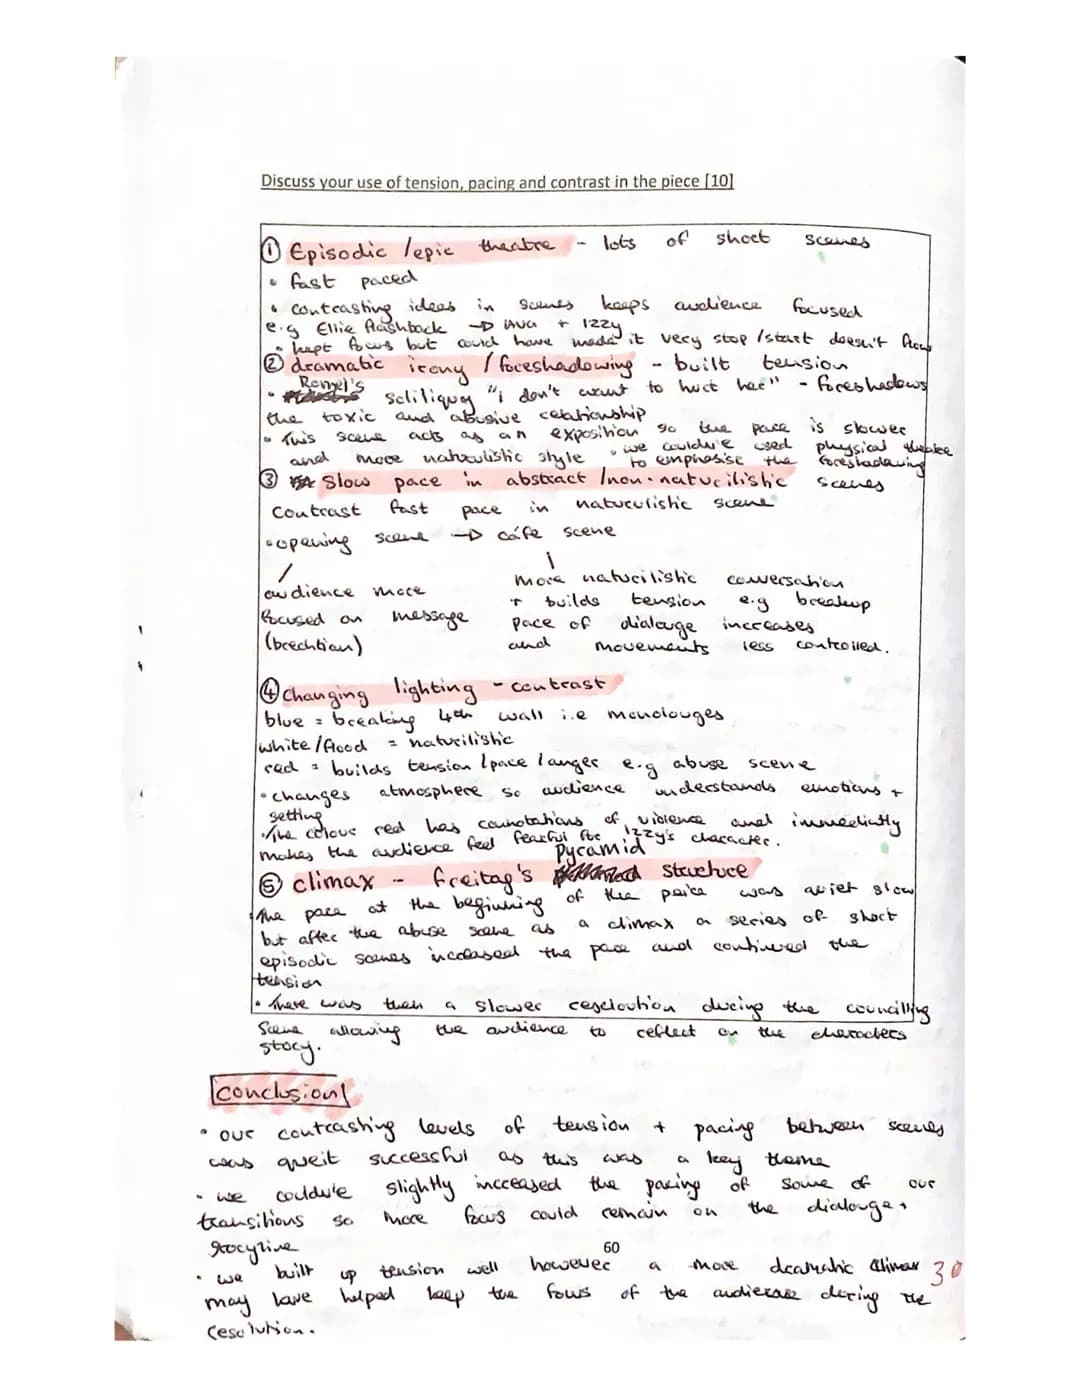 Discuss your use of tension, pacing and contrast in the piece [10]
① Episodic / epic theatre - lots of short scenes
• fast paced
• contrasting ideas in scenes keeps audience focused
e.g Ellie flashback → Ava + Izzy
• kept focus but could have made it very stop / start doesn't flow
② dramatic irony / foreshadowing - built tension
• Romel's soliliquoy "i don't want to hurt her" - foreshadows
the toxic and abusive relationship
• This scene acts as an exposition so the pace is slower
and more naturulistic style • we couldu've used physical theatre
to emphasise the foreshadowing
③ Slow pace in abstract / non-naturilistic scenes
Contrast fast pace in naturulistic scene
• opening scene → café scene
audience more
focused on message
(brechtian)
more naturilistic conversation
+ builds tension e.g breakup
pace of dialouge increases
and movements less controlled.
④ Changing lighting - contrast
blue = breaking 4th wall i.e monolouges
white / flood = naturilistic
red = builds tension / pace / anger e.g abuse scene
• changes atmosphere so audience understands emotions +
setting
• The colour red has connotations of violence and immediatly
makes the audience feel fearful for Izzy's character.
⑤ climax - freitag's Pyramid structure
The pace at the beginning of the peice was quiet slow
but after the abuse scene as a climax a series of short
episodic scenes increased the pace and continued the
tension
• There was then a slower resoloution during the councilling
Scene allowing the audience to reflect on the characters
story.
conclusion
• our contrasting levels of tension + pacing between scenes
was queit successful as this was a key theme
• we couldu've slightly increased the pacing of some of our
transitions so more focus could remain on the dialouge +
storyline
60
• we built up tension well however a more dramatic climax
may have helped keep the fouws of the audience during the
resolution.
30